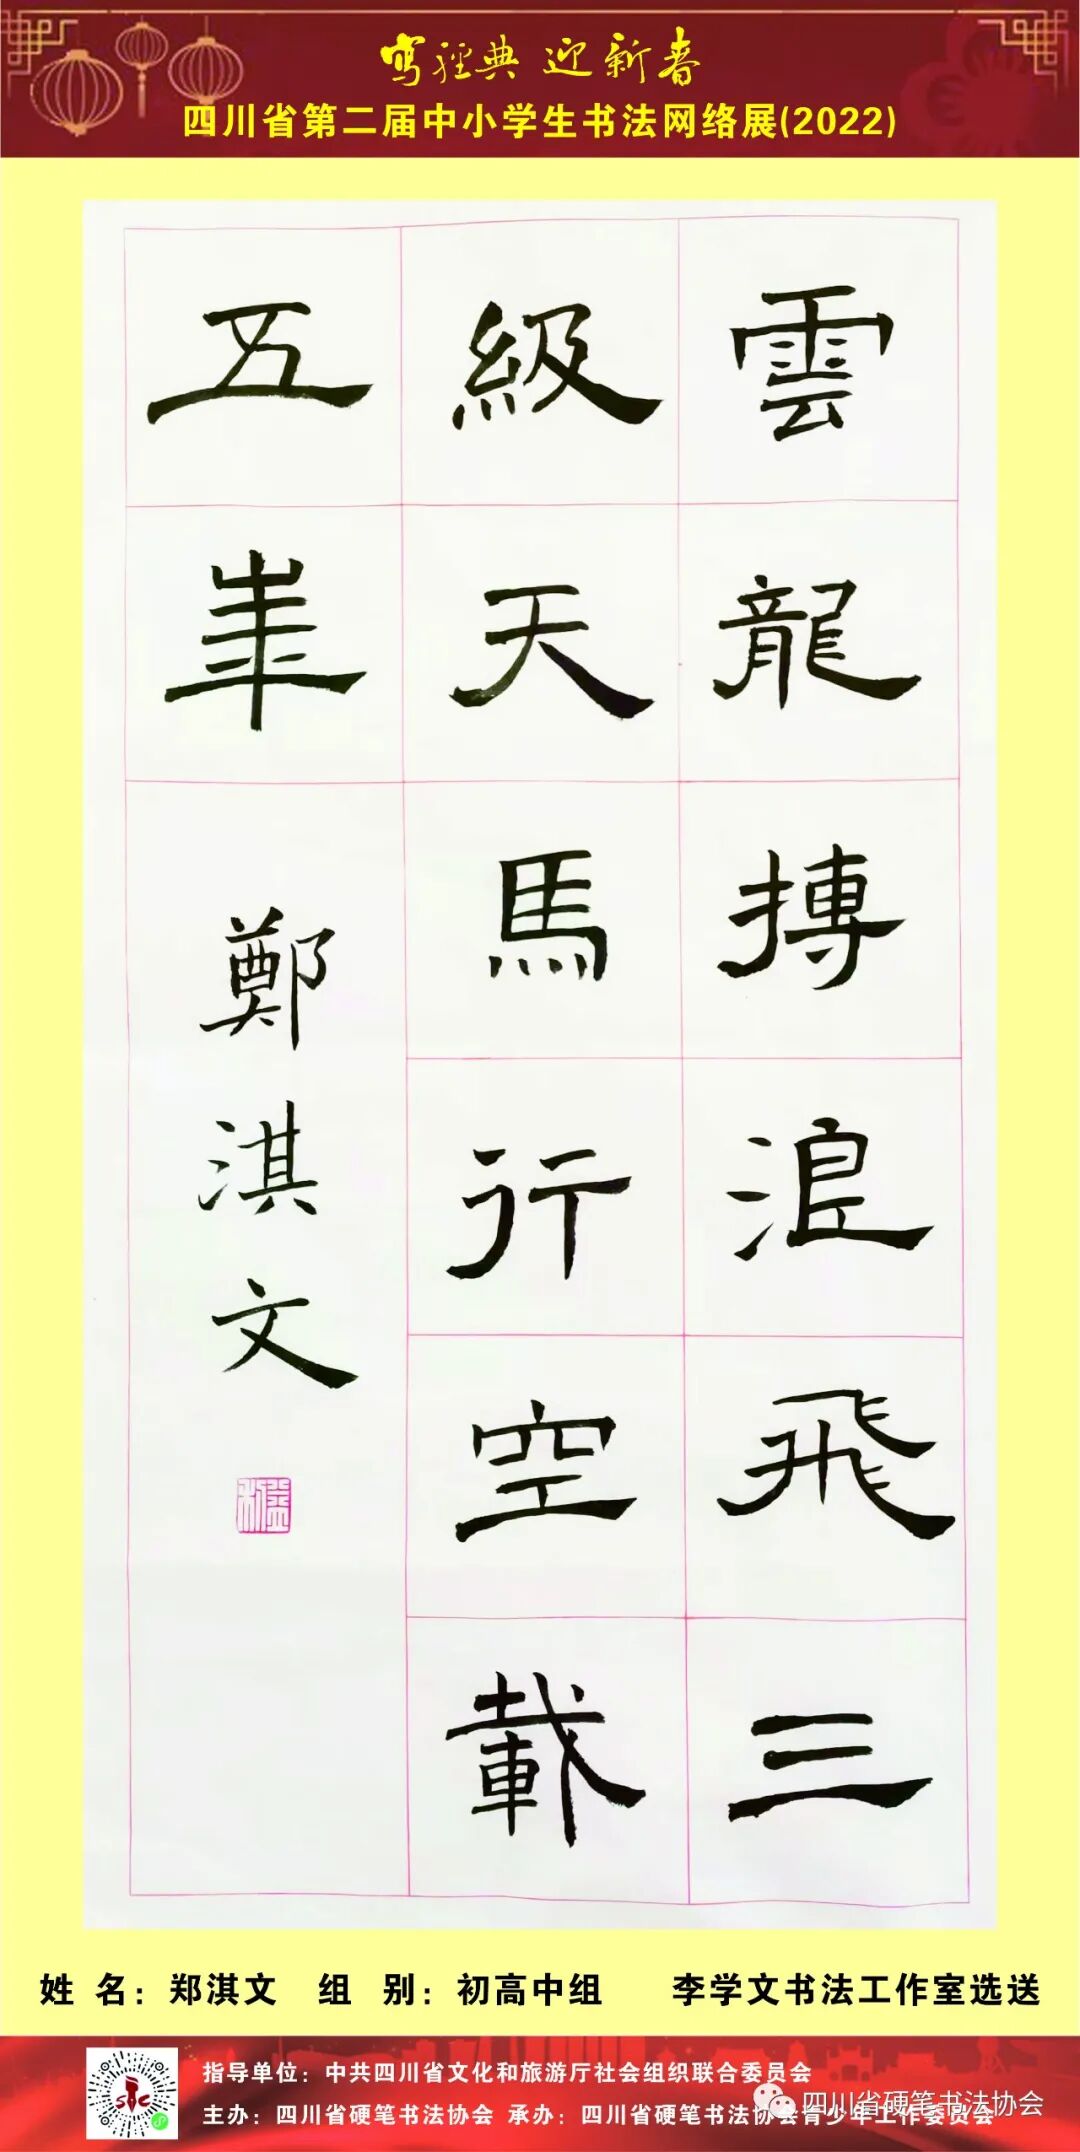 写经典 迎新春
四川省第二届中小学生书法网络展(2022)
雲龍搏浪飛三
級天馬行空載
五年
鄭淇文
姓 名：郑淇文 组 别：初高中组 李学文书法工作室选送
指导单位：中共四川省文化和旅游厅社会组织联合委员会
主办：四川省硬笔书法协会 承办：四川省硬笔书法协会青少年工作委员会
四川省硬笔书法协会